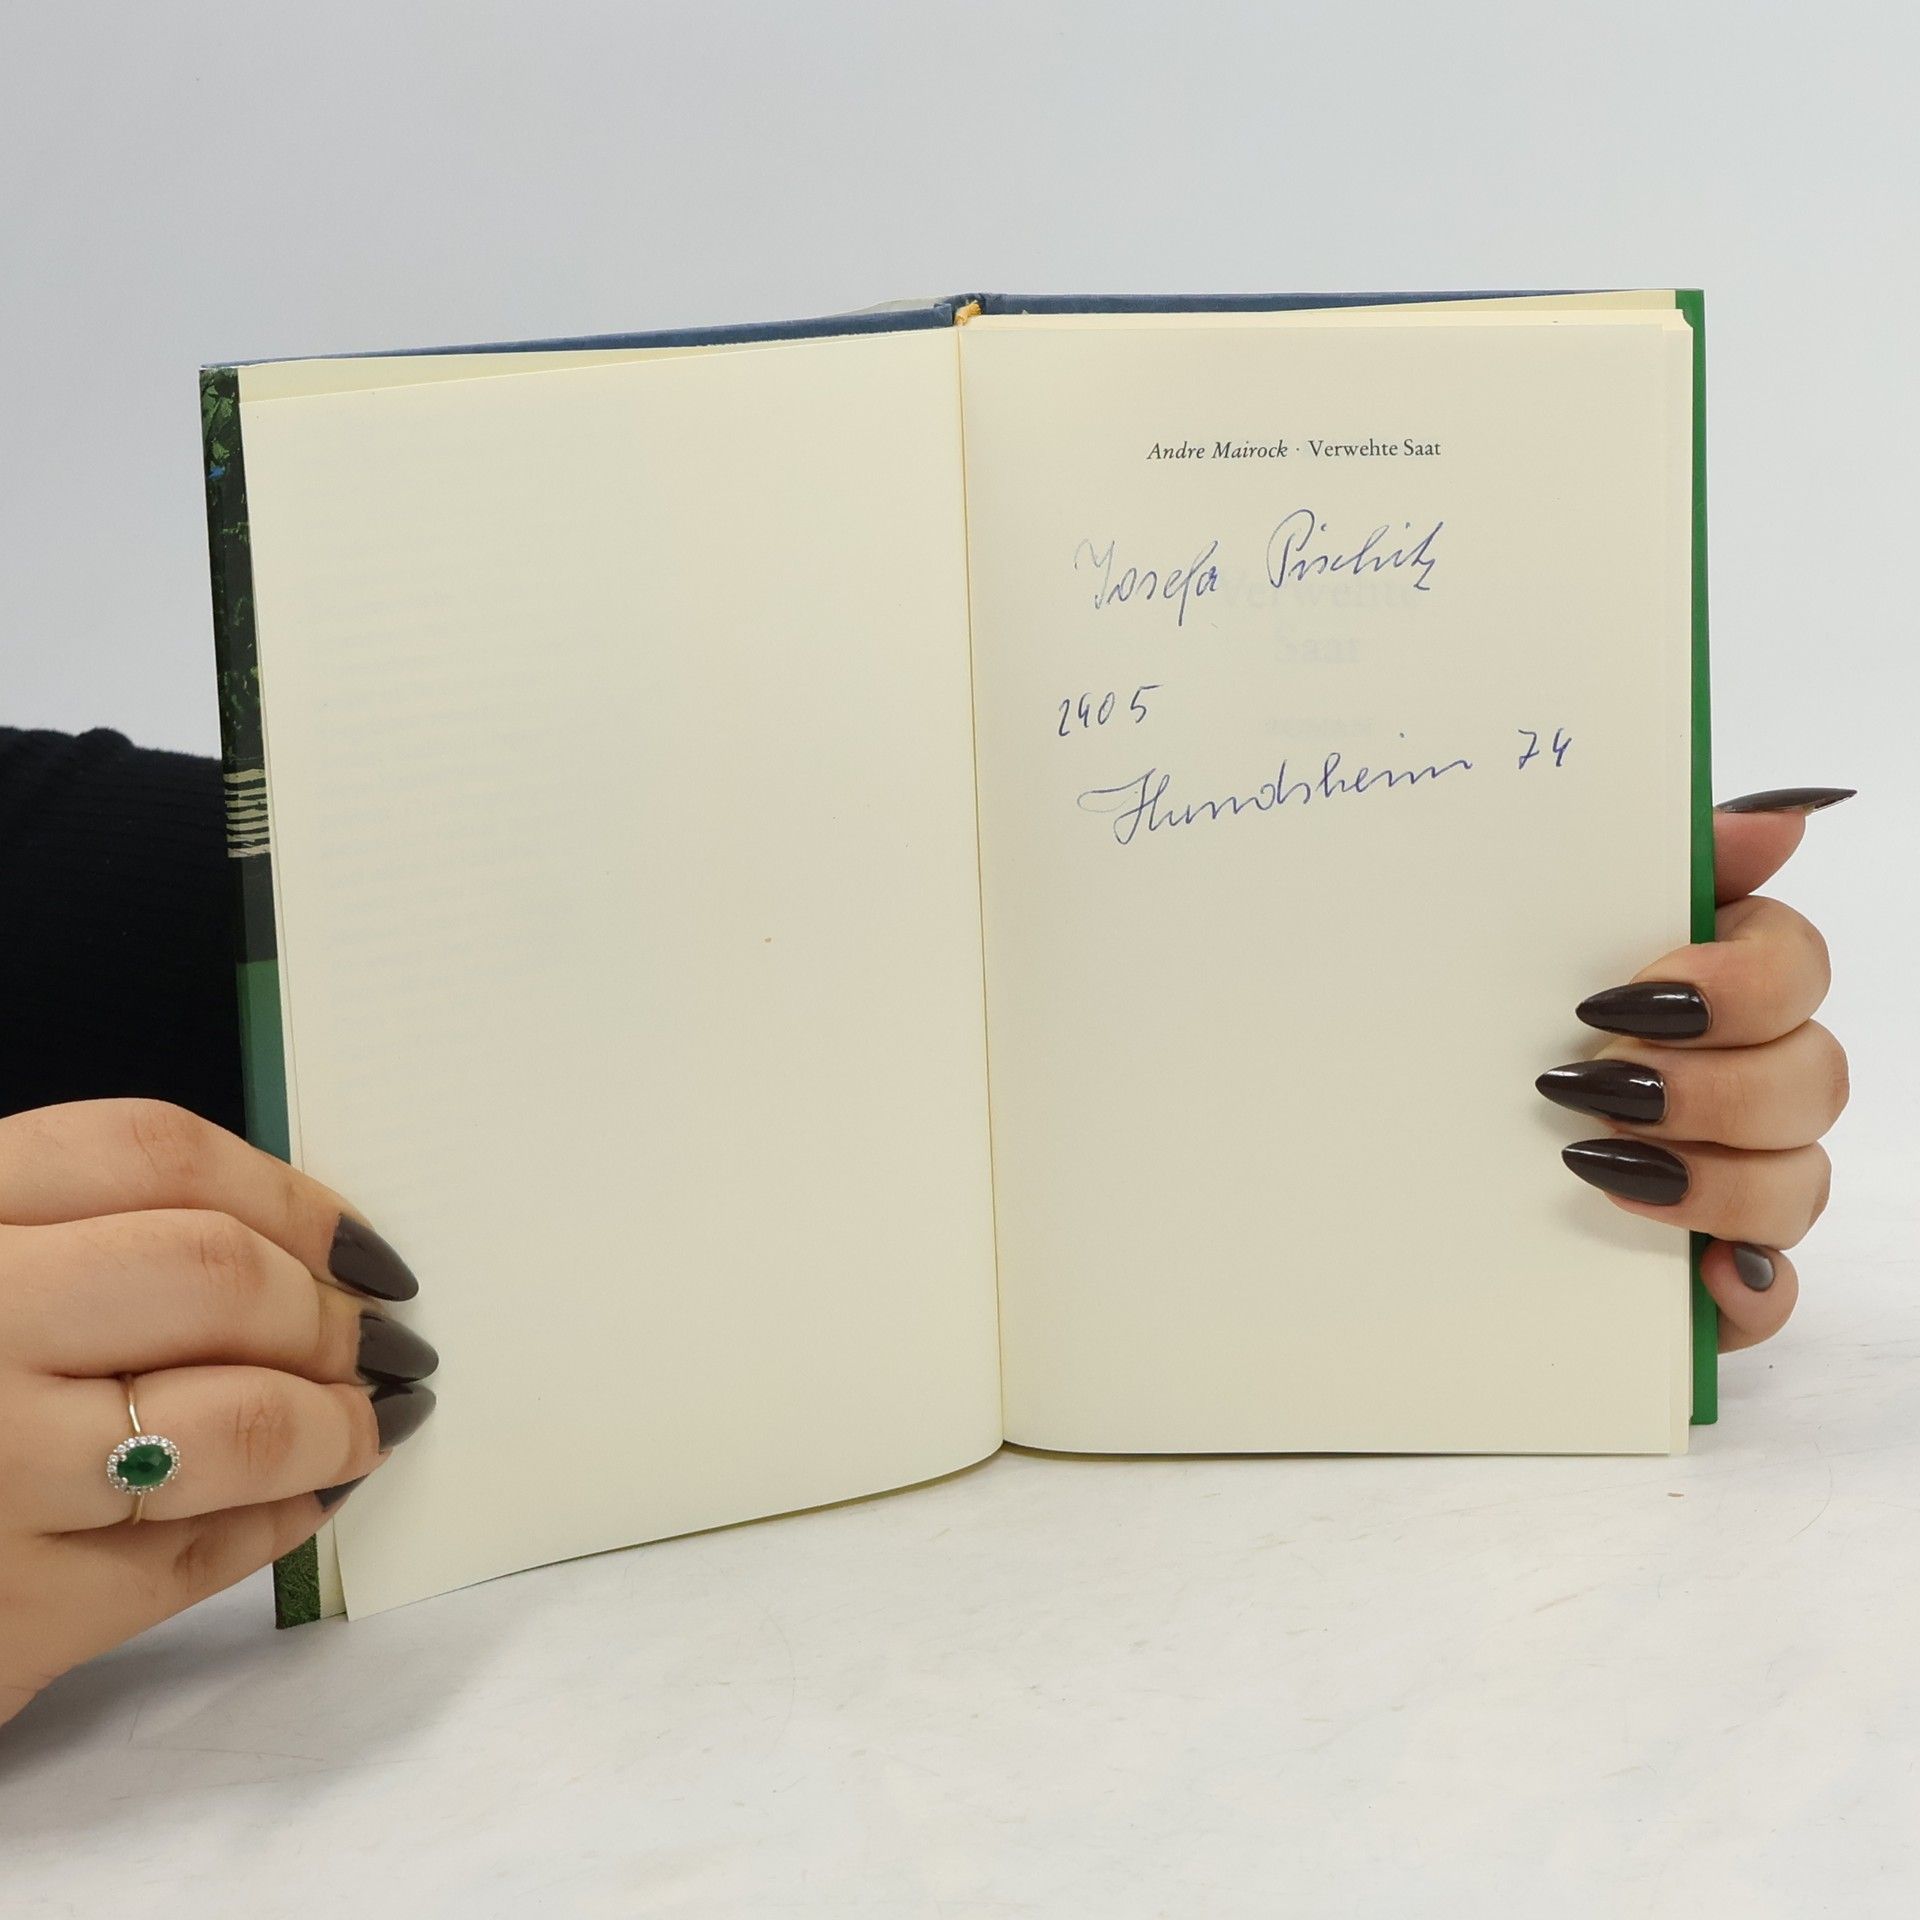 Andre Mairock · Verwehte Saat
Josefa Pischitz
2405
Hundsheim 74
Verwehte
Saat